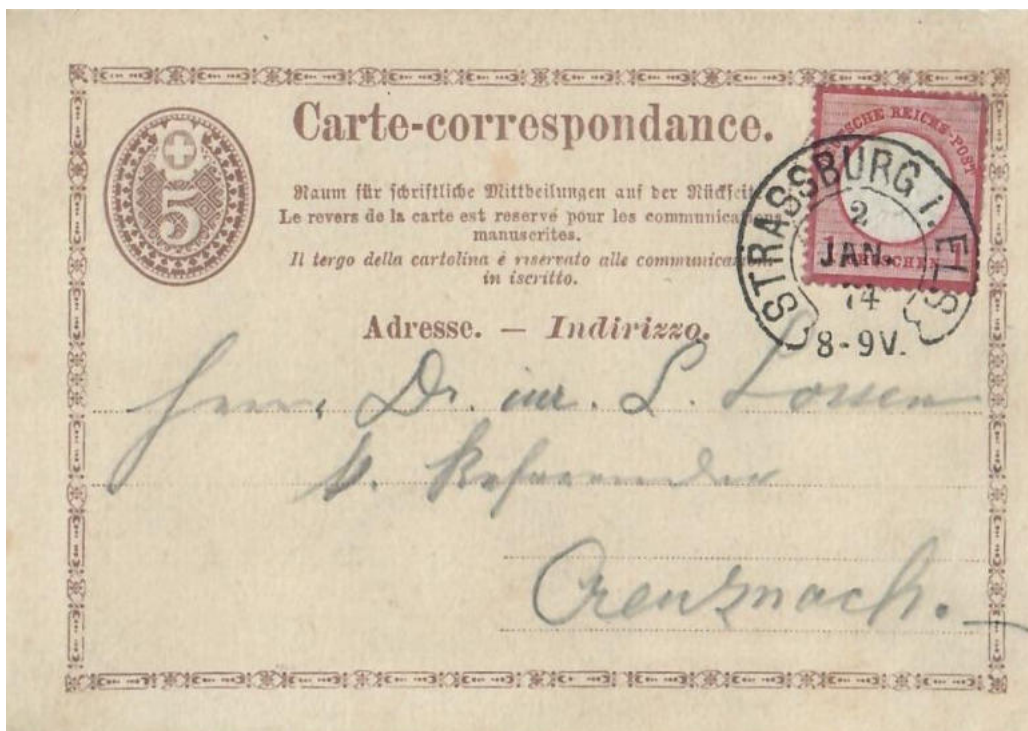 5
Carte-correspondance.
Raum für schriftliche Mittheilungen auf der Rückseite
Le revers de la carte est reservé pour les communications
manuscrites.
Il tergo della cartolina é riservato alle communicazioni
in iscritto.
Adresse. — Indirizzo.
DEUTSCHE REICHS-POST
1 GROSCHEN 1
STRASSBURG i. ELS
2
JAN.
74
8-9V.
Herrn Dr. iur. L. Lossen
k. Referendar
Creuznach.